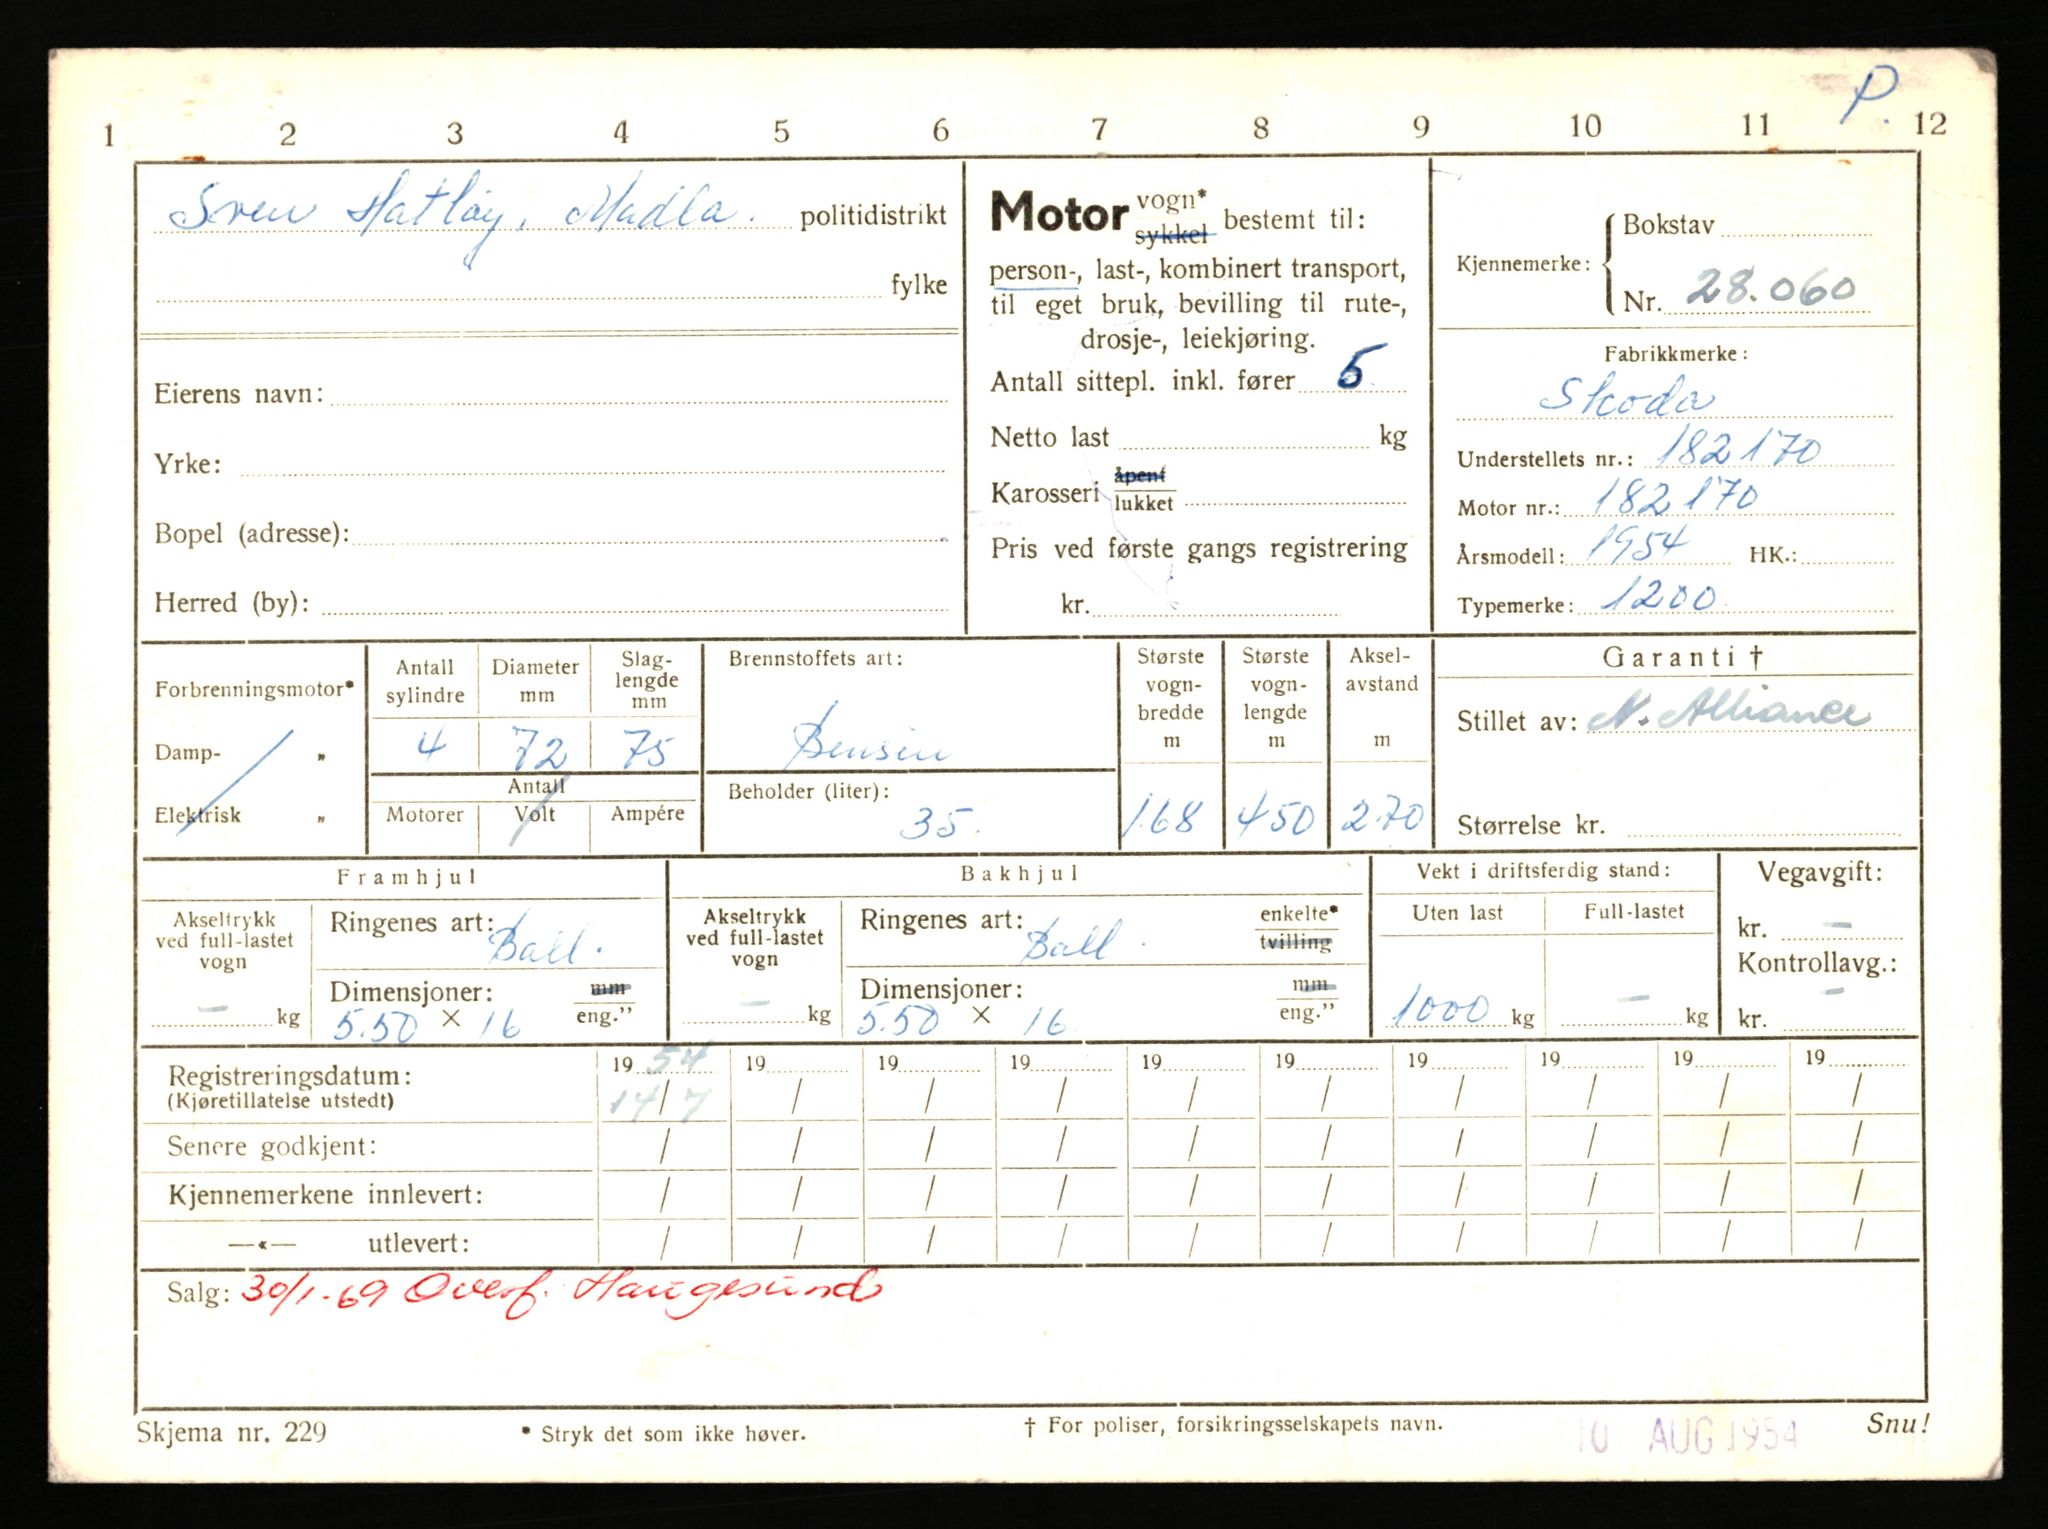 P.
1 2 3 4 5 6 7 8 9 10 11 12
Sven Hatløy, Madla. politidistrikt
fylke
Eierens navn:
Yrke:
Bopel (adresse):
Herred (by):
Motor vogn* sykkel bestemt til:
person-, last-, kombinert transport,
til eget bruk, bevilling til rute-,
drosje-, leiekjøring.
Antall sittepl. inkl. fører 5
Netto last kg
Karosseri åpent lukket
Pris ved første gangs registrering
kr.
Kjennemerke: Bokstav
Nr. 28.060
Fabrikkmerke:
Skoda
Understellets nr.: 182170
Motor nr.: 182170
Årsmodell: 1954 HK.:
Typemerke: 1200
Forbrenningsmotor*
Damp- "
Elektrisk "
Antall sylindre
4
Diameter mm
72
Slag-lengde mm
75
Antall
Motorer Volt Ampére
Brennstoffets art:
Bensin
Beholder (liter):
35.
Største vogn-bredde m
1.68
Største vogn-lengde m
450
Aksel-avstand m
2.70
Garanti †
Stillet av: N. Alliance
Størrelse kr.
Framhjul
Akseltrykk
ved full-lastet
vogn
– kg
Ringenes art: Ball.
Dimensjoner: mm
5.50 × 16 eng."
Bakhjul
Akseltrykk
ved full-lastet
vogn
– kg
Ringenes art: Ball. enkelte* tvilling
Dimensjoner: mm
5.50 × 16 eng."
Vekt i driftsferdig stand:
Uten last Full-lastet
1000 kg – kg
Vegavgift:
kr. –
Kontrollavg.:
kr. –
Registreringsdatum: 19 54 19 19 19 19 19 19 19 19 19
(Kjøretillatelse utstedt) 14/7 / / / / / / / / /
Senere godkjent: / / / / / / / / / /
Kjennemerkene innlevert: / / / / / / / / / /
—«— utlevert: / / / / / / / / / /
Salg: 30/1-69 Overf. Haugesund
Skjema nr. 229 * Stryk det som ikke høver. † For poliser, forsikringsselskapets navn. 10 AUG 1954 Snu!